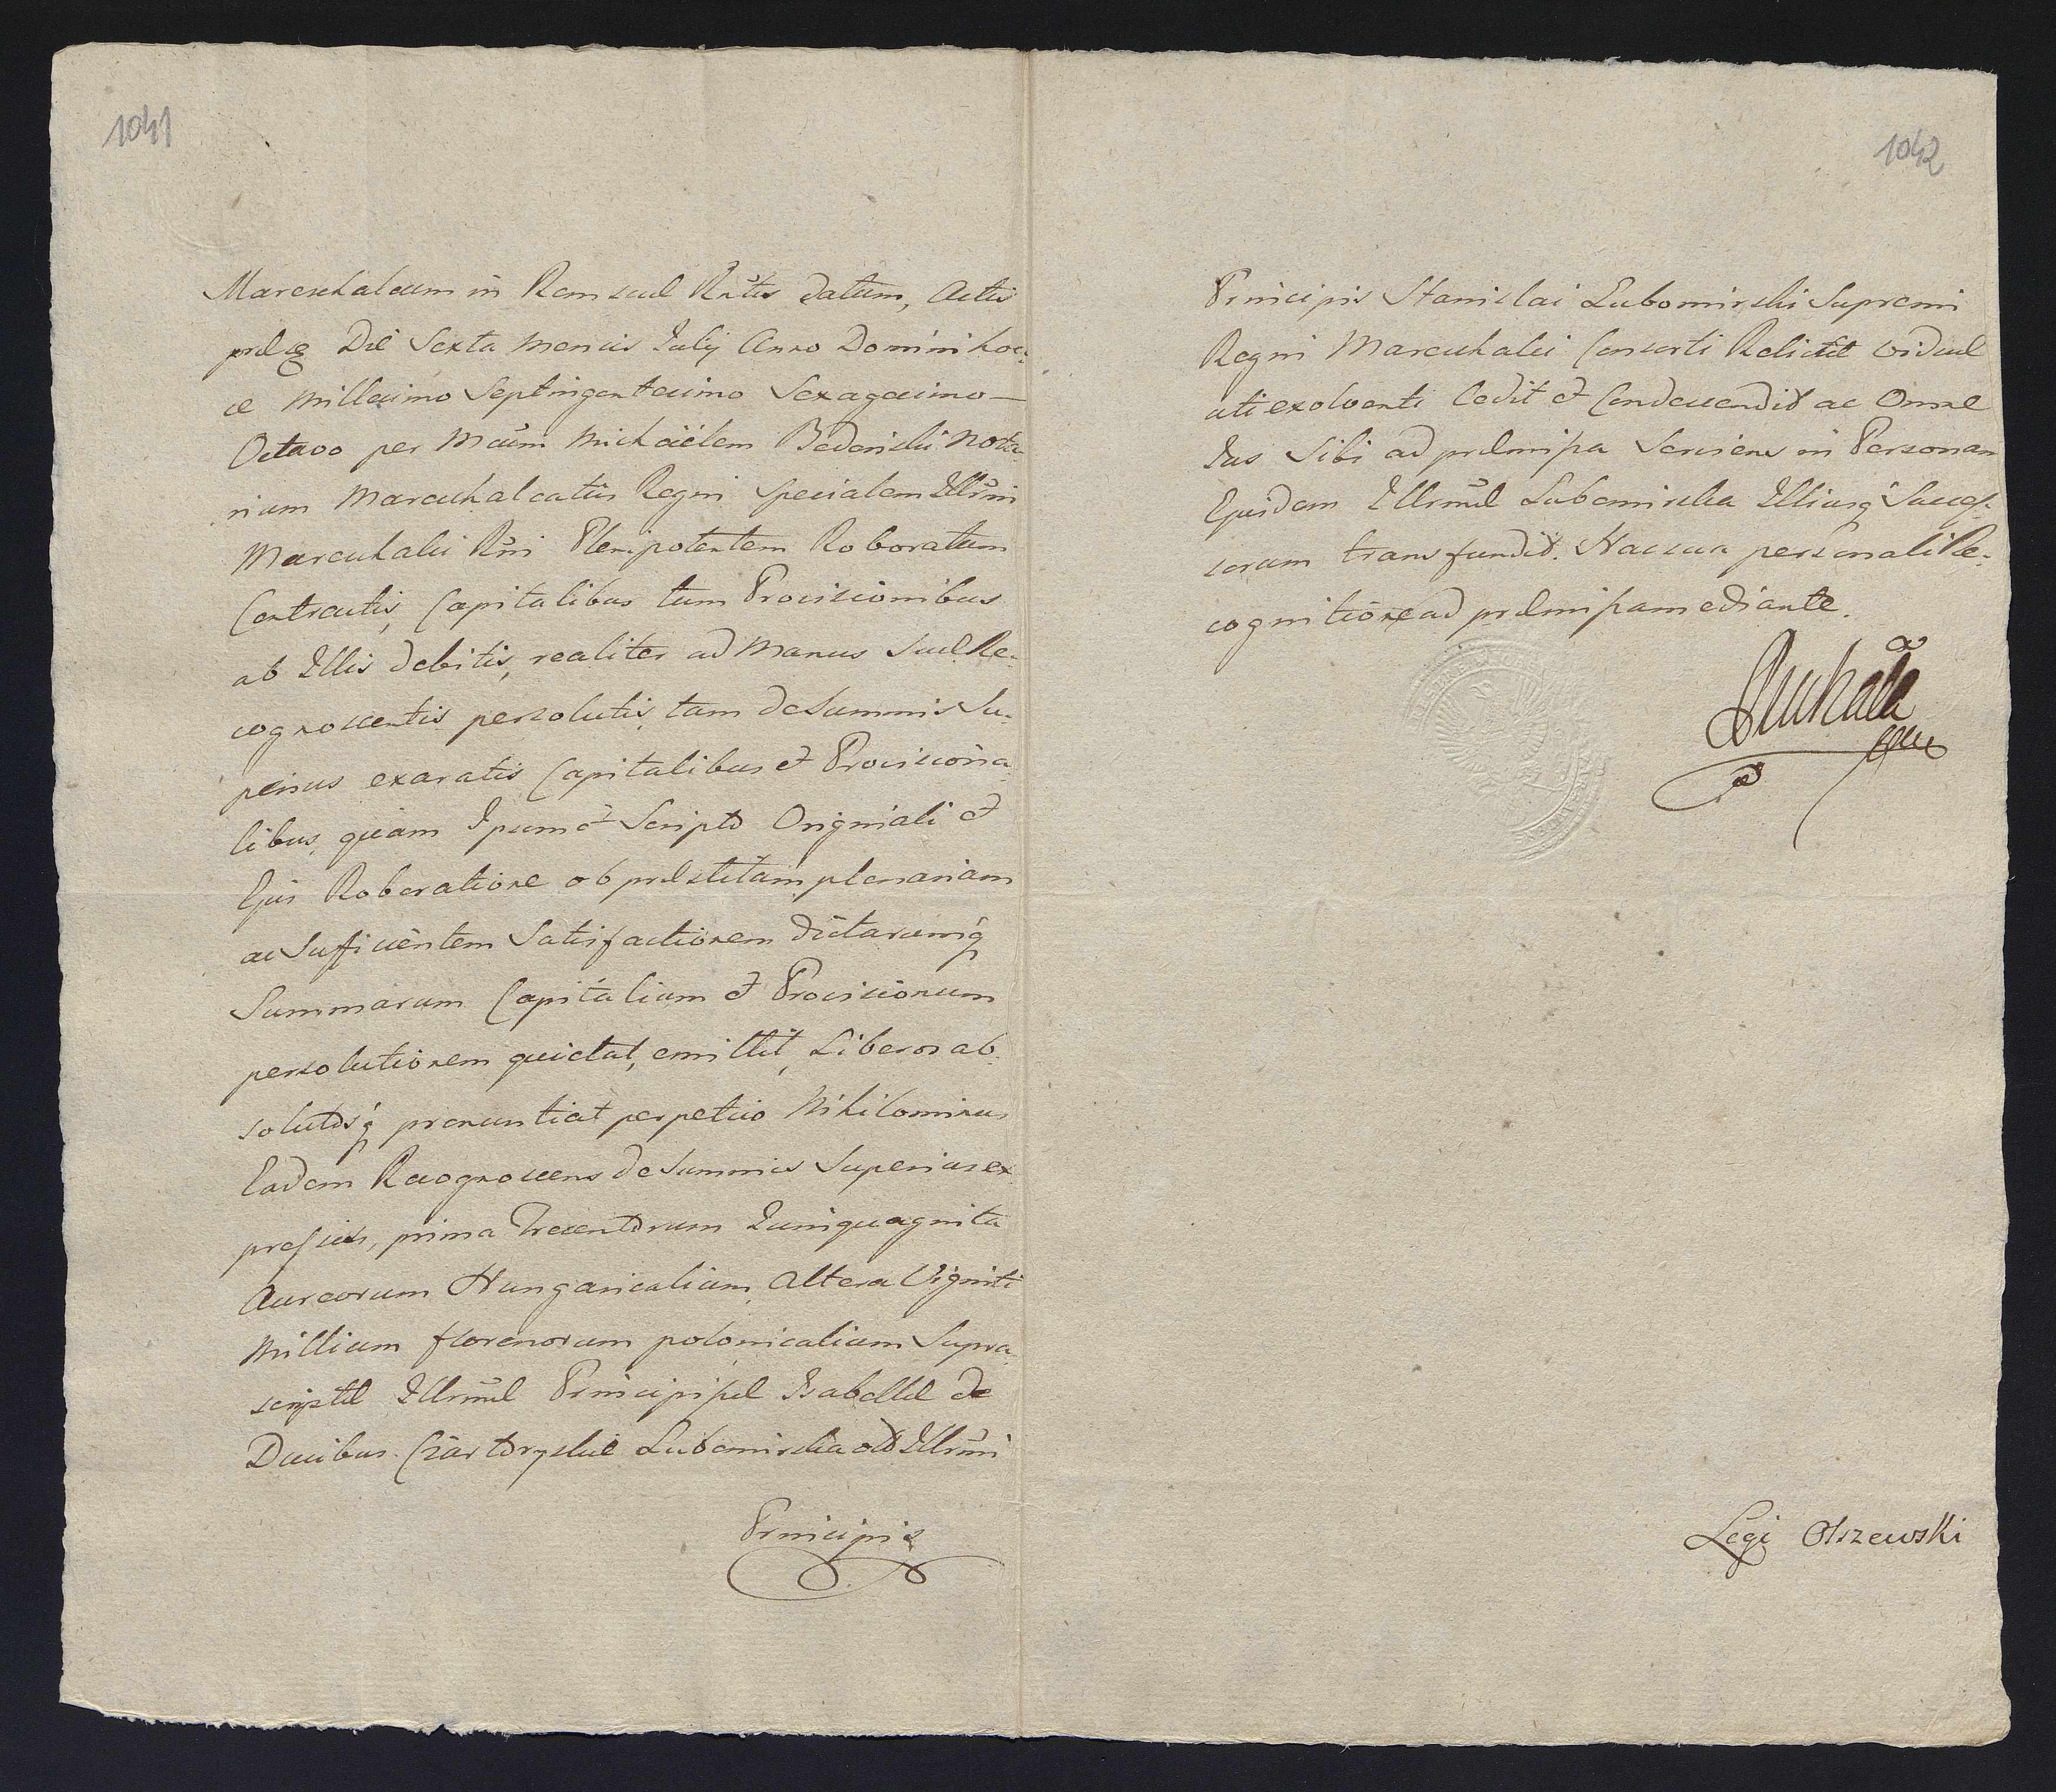 1041
Mareschaleum in Rem suæ Rntis datum, Actis
præsq Die Sexta Mensis Julij Anno Domini hoc-
ce Millesimo Septingentesimo Sexagesimo —
Octavo per Mcum Michaëlem Bedoński Nota-
rium Mareschalcatus Regni specialem Illsmi
Mareschalci Rni Plenipotentem Roboratum
Contractis, Capitalibus tum Provisionibus
ab Illis debitis, realiter ad Manus Suæ Re-
cognoscentis persolutis, tam de Summis Su-
perius exaratis Capitalibus et Provisiona-
libus, quam Ipsemet Scripto Originali et
Ejus Roboratione ob præstitam plenariam
ac Sufficientem Satisfactionem dictarumq
Summarum Capitalium et Provisionum
persolutionem quietat, emittit, Liberos ab-
solutosq pronuntiat perpetuo Nihilominus
Eadem Recognoscens de Summis Superius ex-
pressis, prima Trecentorum Quinquaginta
Aureorum Hungaricalium, Altera Viginti
Millium florenorum polonicalium Supra-
scriptæ Illrmæ Principissæ Isabellæ de
Ducibus Czartoryskie Lubomirska olD Illrmi
Principis
1042
Principis Stanislai Lubomirski Supremi
Regni Mareschalci Consorti Relictæ viduæ
uti exolventi Cedit et Condescendit ac Omne
Jus Sibi ad præmissa Serviens in Personam
Ejusdem Illrmæ Lubomirska Illiusq Succes-
sorum transfundit. Hacsua personali Re-
cognitione ad præmissa mediante.
Legi Olszewski